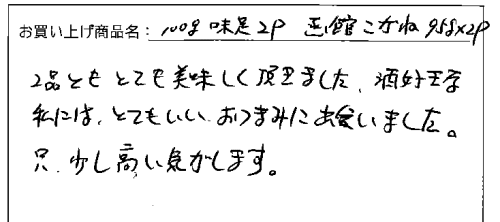 お買い上げ商品名: 100g 味足 2P 函館こがね 95g×2P
2品とも とても美味しく頂きました、酒好きな
私には、とてもいい、おつまみに出会いました。
只、少し高い気がします。